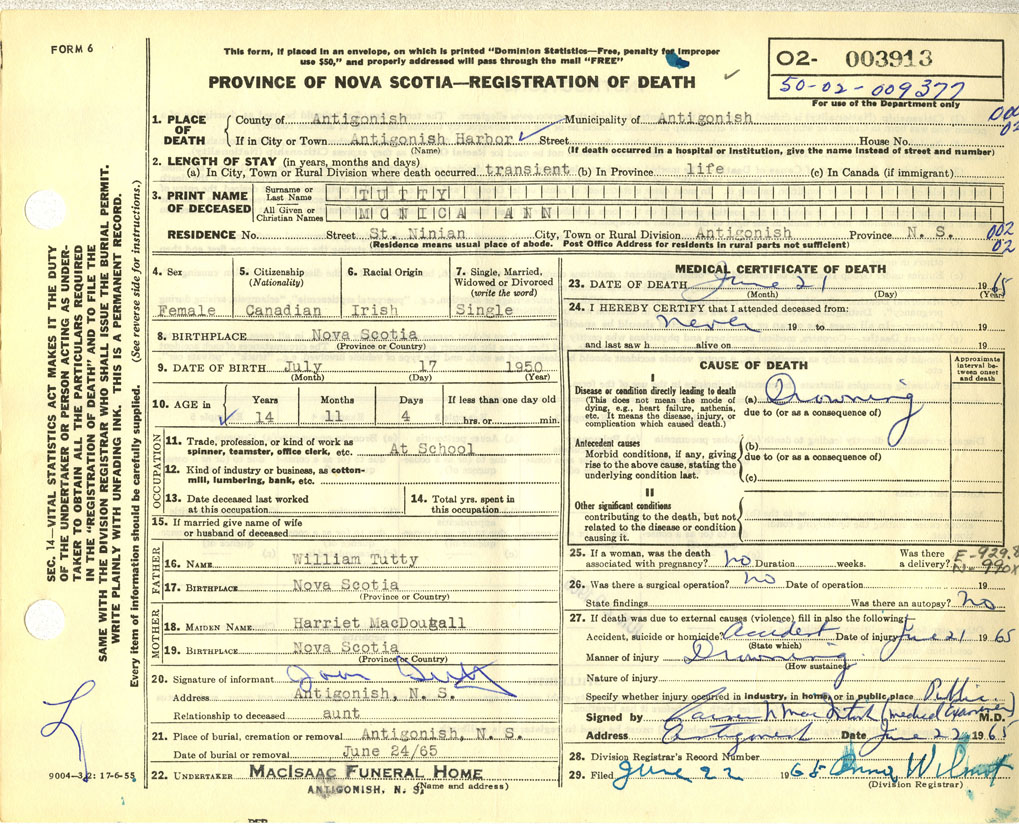 FORM 6
This form, if placed in an envelope, on which is printed "Dominion Statistics—Free, penalty for improper
use $50," and properly addressed will pass through the mail "FREE"
PROVINCE OF NOVA SCOTIA—REGISTRATION OF DEATH
02- 003913
50-02-009377
For use of the Department only
1. PLACE OF DEATH
County of Antigonish Municipality of Antigonish
002
02
If in City or Town Antigonish Harbor Street House No.
(Name) (If death occurred in a hospital or institution, give the name instead of street and number)
2. LENGTH OF STAY (in years, months and days)
(a) In City, Town or Rural Division where death occurred transient (b) In Province life (c) In Canada (if immigrant)
3. PRINT NAME OF DECEASED
Surname or Last Name TUTTY
All Given or Christian Names MONICA ANN
RESIDENCE No. Street St. Ninian City, Town or Rural Division Antigonish Province N. S.
002
02
(Residence means usual place of abode. Post Office Address for residents in rural parts not sufficient)
4. Sex
Female
5. Citizenship
(Nationality)
Canadian
6. Racial Origin
Irish
7. Single, Married,
Widowed or Divorced
(write the word)
Single
8. BIRTHPLACE Nova Scotia
(Province or Country)
9. DATE OF BIRTH July 17 1950
(Month) (Day) (Year)
10. AGE in
Years Months Days If less than one day old
14 11 4 hrs. or min.
OCCUPATION
11. Trade, profession, or kind of work as
spinner, teamster, office clerk, etc. At School
12. Kind of industry or business, as cotton-
mill, lumbering, bank, etc.
13. Date deceased last worked
at this occupation
14. Total yrs. spent in
this occupation
15. If married give name of wife
or husband of deceased
FATHER
16. NAME William Tutty
17. BIRTHPLACE Nova Scotia
(Province or Country)
MOTHER
18. MAIDEN NAME Harriet MacDougall
19. BIRTHPLACE Nova Scotia
(Province or Country)
20. Signature of informant
Address Antigonish, N. S.
Relationship to deceased aunt
21. Place of burial, cremation or removal Antigonish, N. S.
Date of burial or removal June 24/65
22. UNDERTAKER MACISAAC FUNERAL HOME
ANTIGONISH, N. S. (Name and address)
MEDICAL CERTIFICATE OF DEATH
23. DATE OF DEATH June 21 1965
(Month) (Day) (Year)
24. I HEREBY CERTIFY that I attended deceased from:
never 19 to 19
and last saw h alive on 19
CAUSE OF DEATH
Approximate
interval be-
tween onset
and death
I
Disease or condition directly leading to death
(This does not mean the mode of
dying, e.g., heart failure, asthenia,
etc. It means the disease, injury, or
complication which caused death.)
(a) Drowning
due to (or as a consequence of)
Antecedent causes
Morbid conditions, if any, giving
rise to the above cause, stating the
underlying condition last.
(b)
due to (or as a consequence of)
(c)
II
Other significant conditions
contributing to the death, but not
related to the disease or condition
causing it.
25. If a woman, was the death
associated with pregnancy? no Duration weeks. Was there
a delivery?
E-929.8
N-990X
26. Was there a surgical operation? no Date of operation 19
State findings Was there an autopsy? no
27. If death was due to external causes (violence) fill in also the following:
Accident, suicide or homicide? Accident Date of injury June 21 1965
(State which)
Manner of injury Drowning
(How sustained)
Nature of injury
Specify whether injury occurred in industry, in home, or in public place Public
Signed by (medical examiner) M.D.
Address Antigonish Date June 22 1965
28. Division Registrar's Record Number
29. Filed June 22 1965 Anna Wilmot
(Division Registrar)
SEC. 14—VITAL STATISTICS ACT MAKES IT THE DUTY
OF THE UNDERTAKER OR PERSON ACTING AS UNDER-
TAKER TO OBTAIN ALL THE PARTICULARS REQUIRED
IN THE "REGISTRATION OF DEATH" AND TO FILE THE
SAME WITH THE DIVISION REGISTRAR WHO SHALL ISSUE THE BURIAL PERMIT.
WRITE PLAINLY WITH UNFADING INK. THIS IS A PERMANENT RECORD.
Every item of information should be carefully supplied. (See reverse side for instructions.)
9004-32: 17-6-55